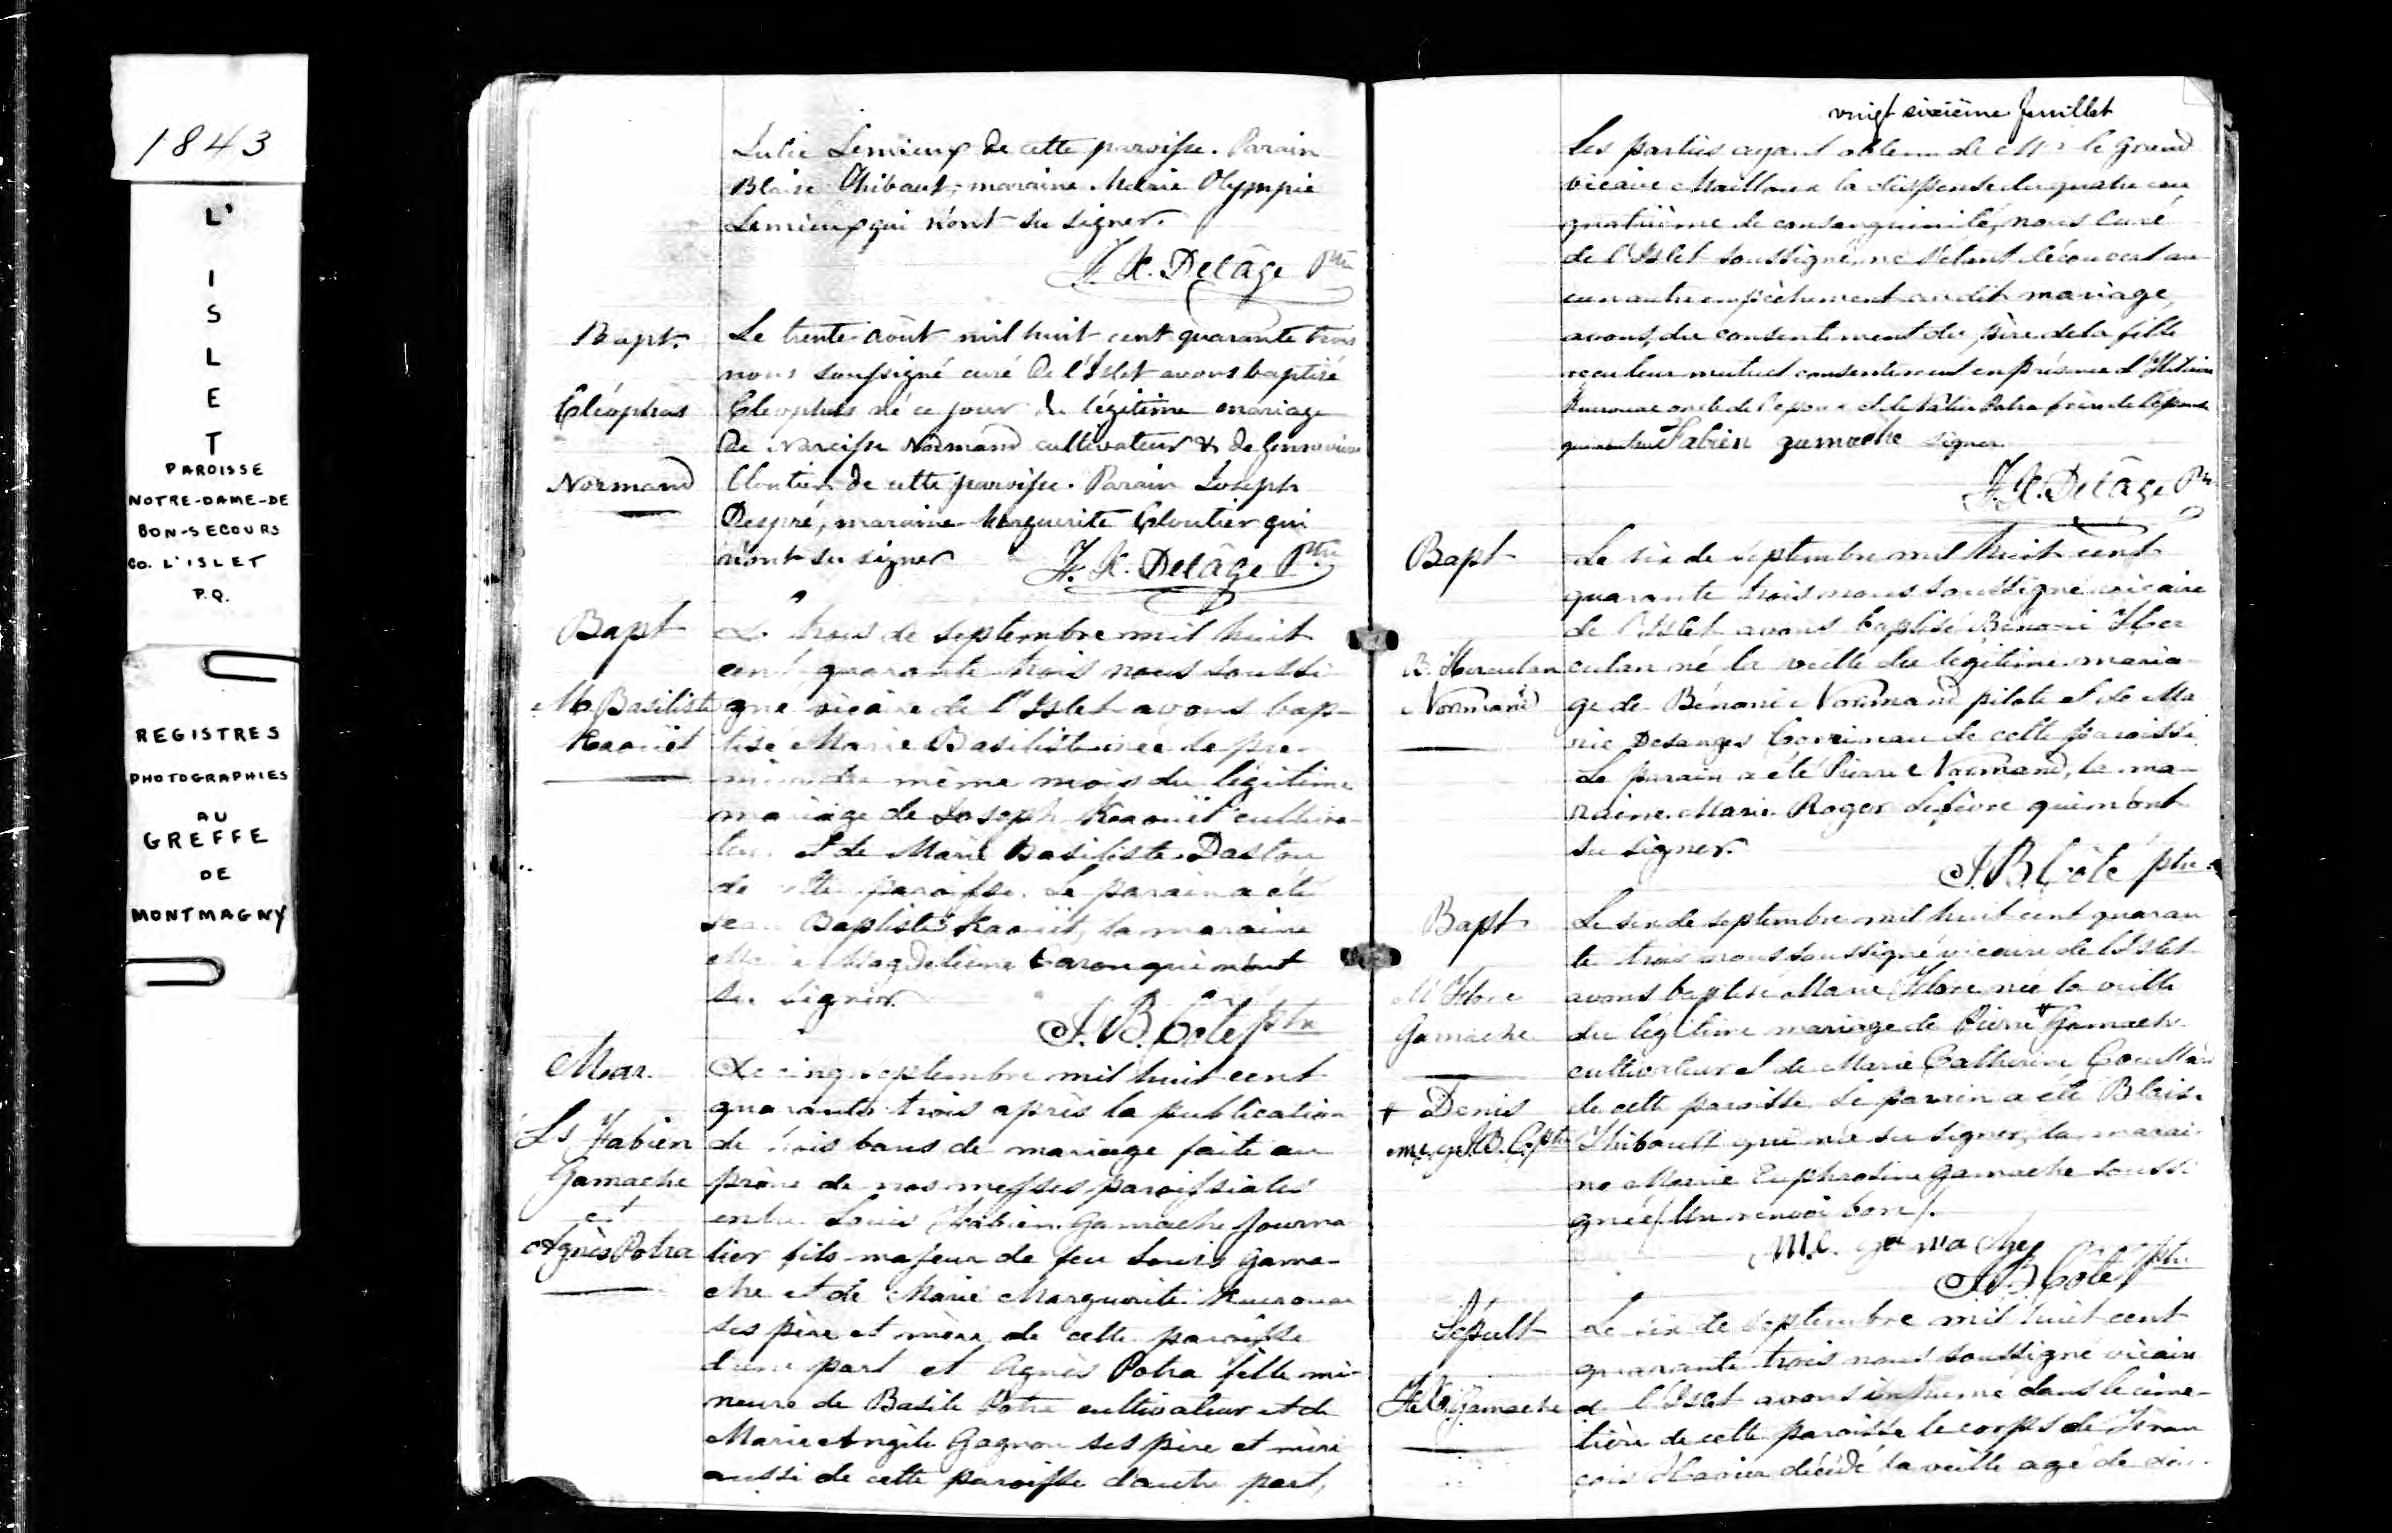 1843
L'
I
S
L
E
T
PAROISSE
NOTRE-DAME-DE
BON-SECOURS
CO. L'ISLET
P.Q.
REGISTRES
PHOTOGRAPHIES
AU
GREFFE
DE
MONTMAGNY
Julie Lemieux de cette paroisse. Parain
Blaise Thibaut, maraine Marie Olympie
Lemieux qui n'ont su signer.
F. X. Delâge Ptre
Bapt.
Cléophas
Normand
Le trente août mil huit cent quarante trois
nous soussigné curé de l'Islet avons baptisé
Cléophas né ce jour du légitime mariage
de Narcisse Normand cultivateur & de Genevieve
Cloutier de cette paroisse. Parain Joseph
Despré, maraine Marguerite Cloutier qui
n'ont su signer
F. X. Delâge Ptre
Bapt
M. Basiliste
Kaouët
Le trois de septembre mil huit
cent quarante trois nous soussi
gné vicaire de l'Islet avons bap-
tisé Marie Basiliste née le pre-
mier du même mois du légitime
mariage de Joseph Kaouët cultiva-
teur et de Marie Basiliste Dastou
de cette paroisse. Le parain a été
Jean Baptiste Kaouët, la maraine
Marie Magdeleine Caron qui n'ont
su signer.
J. B. Côté ptre
Mar.
Ls Fabien
Gamache
et
Agnès Potra
Le cinq septembre mil huit cent
quarante trois après la publication
de trois bans de mariage faite au
prône de nos messes paroissiales
entre Louis Fabien Gamache journa
lier fils majeur de feu Louis Gama-
che et de Marie Marguerite Kuerouac
ses père et mère de cette paroisse
d'une part et Agnès Potra fille mi-
neure de Basile Potra cultivateur et de
Marie Angèle Gagnon ses père et mère
aussi de cette paroisse d'autre part,
vingt sixième feuillet
Les parties ayant obtenu de Mr le Grand
vicaire Mailloux la dispense du quatre au
quatrième de consanguinité, nous curé
de l'Islet soussigné, ne s'étant découvert au
cun autre empêchement au dit mariage,
avons, du consentement du père de la fille
reçu leur mutuel consentement en présence d'
Kuerouac oncle de l'epoux et de Potra frère de l'épouse
Fabien gamache signer
F. X. Delâge Ptre
Bapt
B. Herculan
Normand
Le six de septembre mil huit cent
quarante trois nous soussigné vicaire
de l'Islet avons baptisé Bénoni Her
culan né la veille du légitime maria-
ge de Bénoni Normand pilote et de Ma
rie Desanges Corriveau de cette paroisse
Le parain a été Pierre Normand, la ma-
raine Marie Roger Lefèvre qui n'ont
su signer.
J. B. Côté ptre
Bapt
M Flore
Gamache
+ Denis
Le six de septembre mil huit cent quaran
te trois nous soussigné vicaire de l'Islet
avons baptisé Marie Flore née la veille
du légitime mariage de Pierre + Gamache
cultivateur et de Marie Catherine
de cette paroisse. Le parrain a été Blaise
Thibault qui n'a su signer, la marai
ne Marie Euphrosine Gamache soussi
gnée / Un renvoi bon /.
M.E. gamache
J. B Côté Ptre
Sépult
F. X. Gamache
Le six de septembre mil huit cent
quarante trois nous soussigné vicaire
de l'Islet avons inhumé dans le cime-
tière de cette paroisse le corps de Fran
çois Xavier décédé la veille agé de